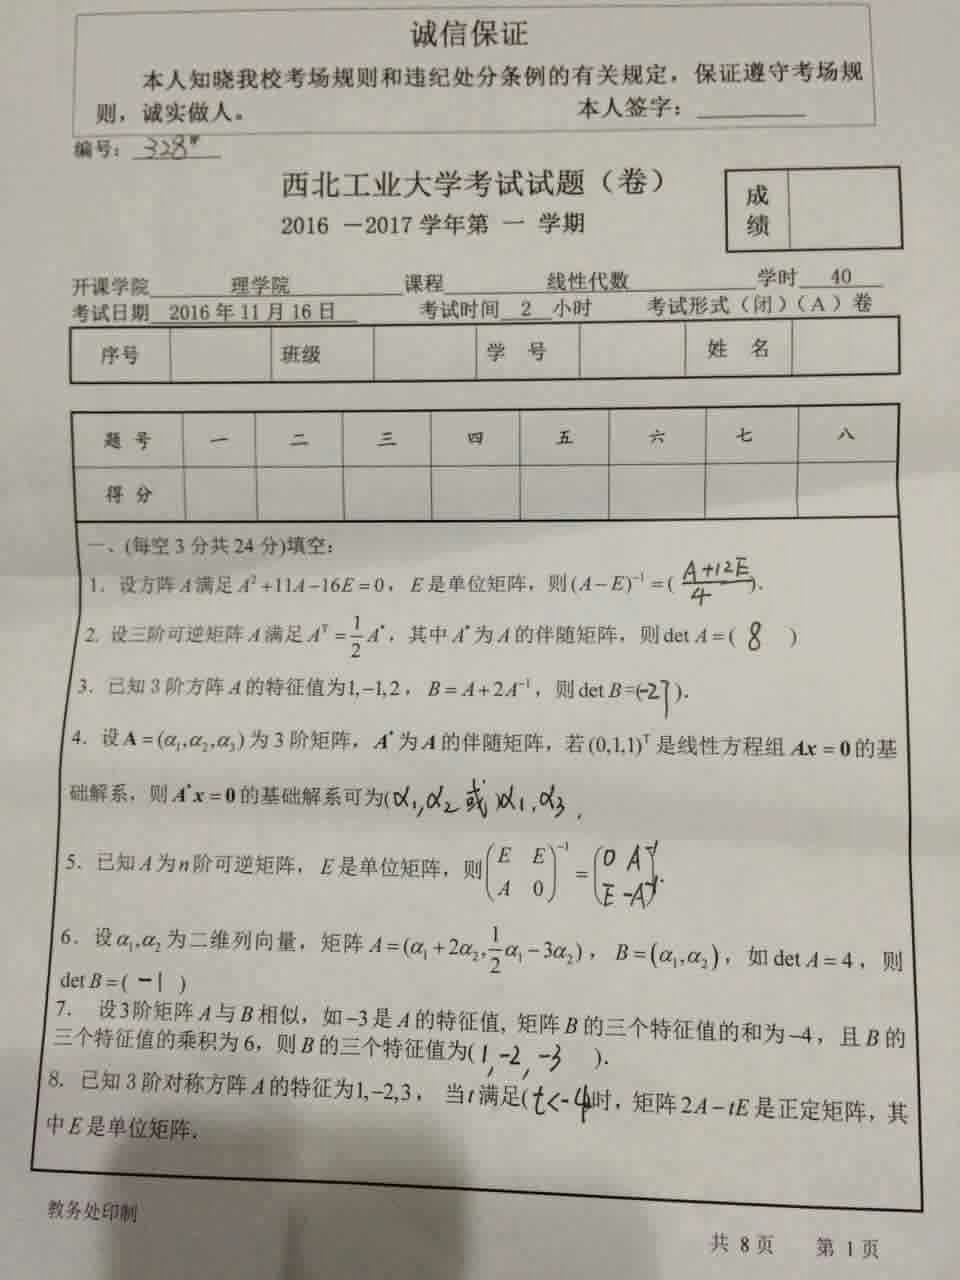 诚信保证
本人知晓我校考场规则和违纪处分条例的有关规定，保证遵守考场规
则，诚实做人。 本人签字：
编号： 328#
西北工业大学考试试题（卷）
成绩
2016 －2017 学年第 一 学期
开课学院 理学院 课程 线性代数 学时 40
考试日期 2016 年 11 月 16 日 考试时间 2 小时 考试形式（闭）（A）卷
序号 班级 学 号 姓 名
题 号 一 二 三 四 五 六 七 八
得 分
一、(每空 3 分共 24 分)填空：
1．设方阵 A 满足 A²+11A−16E=0， E 是单位矩阵，则 (A−E)⁻¹ = ( (A+12E)/4 ).
2. 设三阶可逆矩阵 A 满足 Aᵀ = 1/2 A*，其中 A* 为 A 的伴随矩阵，则 det A = ( 8 )
3．已知 3 阶方阵 A 的特征值为1,−1,2， B = A+2A⁻¹，则 det B=(-27).
4．设 A = (α₁,α₂,α₃) 为 3 阶矩阵，A* 为 A 的伴随矩阵，若 (0,1,1)ᵀ 是线性方程组 Ax = 0 的基
础解系，则 A*x = 0 的基础解系可为(α₁,α₂ 或 )α₁,α₃ .
5．已知 A 为 n 阶可逆矩阵， E 是单位矩阵，则 (E E; A 0)⁻¹ = (0 A⁻¹; E -A⁻¹).
6．设 α₁,α₂ 为二维列向量，矩阵 A = (α₁ + 2α₂, 1/2 α₁ − 3α₂)， B = (α₁,α₂)，如 det A = 4，则
det B = ( -1 )
7． 设3阶矩阵 A 与 B 相似，如 −3 是 A 的特征值, 矩阵 B 的三个特征值的和为 −4，且 B 的
三个特征值的乘积为 6，则 B 的三个特征值为( 1, -2, -3 ).
8. 已知 3 阶对称方阵 A 的特征为1,−2,3， 当 t 满足( t<-4 )时，矩阵 2A − tE 是正定矩阵，其
中 E 是单位矩阵.
教务处印制
共 8 页 第 1 页